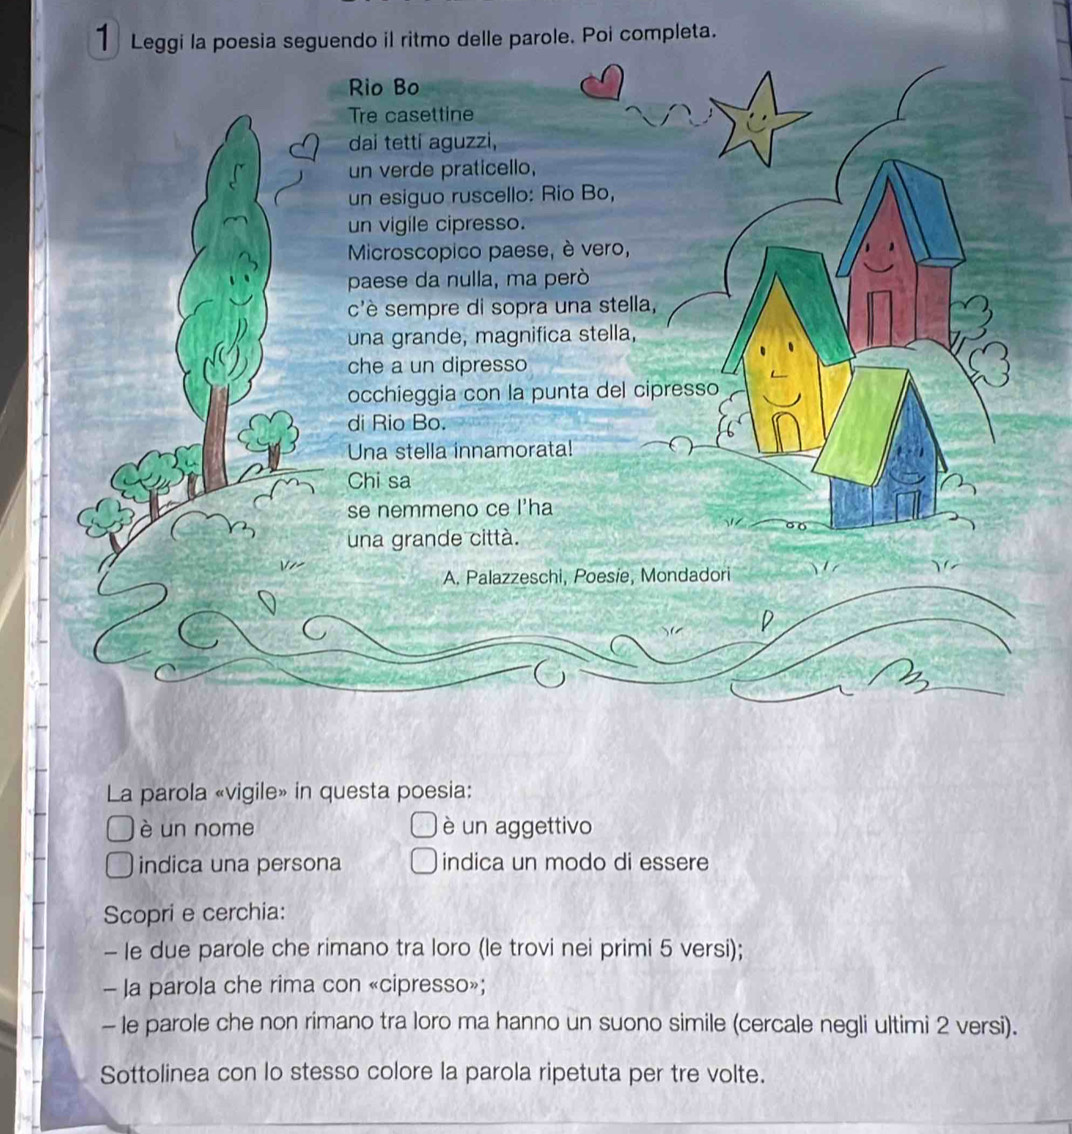 1 Leggi la poesia seguendo il ritmo delle parole. Poi completa.
Rio Bo
Tre casettine
dai tetti aguzzi,
un verde praticello,
un esiguo ruscello: Rio Bo,
un vigile cipresso.
Microscopico paese, è vero,
paese da nulla, ma però
c'è sempre di sopra una stella,
una grande, magnifica stella,
che a un dipresso
occhieggia con la punta del cipresso
di Rio Bo.
Una stella innamorata!
Chi sa
se nemmeno ce l'ha
una grande città.
A. Palazzeschi, Poesie, Mondadori
La parola «vigile» in questa poesia:
è un nome è un aggettivo
indica una persona indica un modo di essere
Scopri e cerchia:
– le due parole che rimano tra loro (le trovi nei primi 5 versi);
– la parola che rima con «cipresso»;
– le parole che non rimano tra loro ma hanno un suono simile (cercale negli ultimi 2 versi).
Sottolinea con lo stesso colore la parola ripetuta per tre volte.